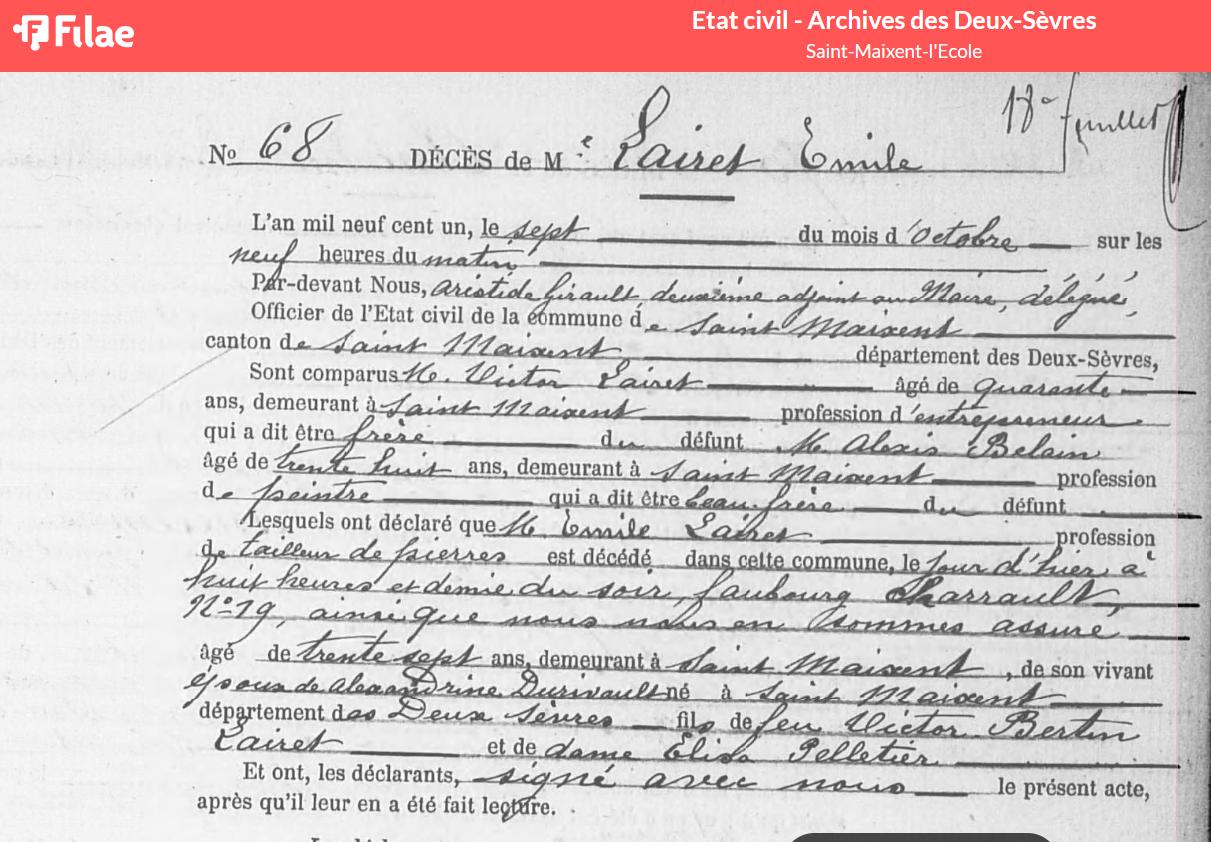 Filae
Etat civil - Archives des Deux-Sèvres
Saint-Maixent-l'Ecole
18e juillet
No 68 DÉCÈS de M r Lairet Emile
L'an mil neuf cent un, le sept du mois d'octobre sur les
neuf heures du matin
Par-devant Nous, aristide Girault, deuxième adjoint au Maire, délégué,
Officier de l'Etat civil de la commune de Saint Maixent
canton de Saint Maixent département des Deux-Sèvres,
Sont comparus M. Victor Lairet âgé de quarante
ans, demeurant à Saint Maixent profession d'entrepreneur
qui a dit être frère du défunt M. Alexis Belain
âgé de trente huit ans, demeurant à Saint Maixent profession
de peintre qui a dit être beau frère du défunt
Lesquels ont déclaré que M. Emile Lairet profession
de tailleur de pierres est décédé dans cette commune, le jour d'hier, à
huit heures et demie du soir, faubourg Charrault,
No 19 ainsi que nous nous en sommes assuré
âgé de trente sept ans, demeurant à Saint Maixent, de son vivant
époux de Alexandrine Durivault né à Saint Maixent
département des Deux Sèvres fils de feu Victor Bertin
Lairet et de dame Elisa Pelletier
Et ont, les déclarants, signé avec nous le présent acte,
après qu'il leur en a été fait lecture.